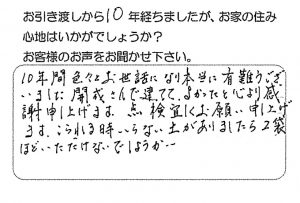 お引き渡しから10年経ちましたが、お家の住み
心地はいかがでしょうか？
お客様のお声をお聞かせ下さい。
10年間色々とお世話になり本当に有難うござ
いました 開成さんで建てて、よかったと心より感
謝申し上げます。点検宜しくお願い申し上げ
ます。こられる時いらない土がありましたら2袋
ほどいただけないでしょうか…